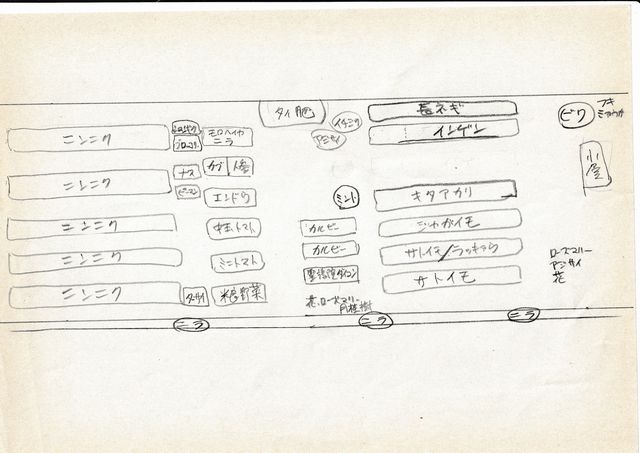 タイ肥
長ネギ
イチジク
インゲン
アジサイ
ビワ
フキ
ミョウガ
ニンニク
ブロッコリー
モロヘイヤ
ニラ
小屋
ニンニク
ナス
カブ
人参
ピーマン
エンドウ
ミント
キタアカリ
ニンニク
中玉トマト
カルビー
ジャガイモ
ニンニク
ミニトマト
カルビー
サトイモ/ラッキョウ
ローズマリー
アジサイ
花
ニンニク
ターサイ
聖護院ダイコン
サトイモ
花、ローズマリー
月桂樹
ニラ
ニラ
ニラ